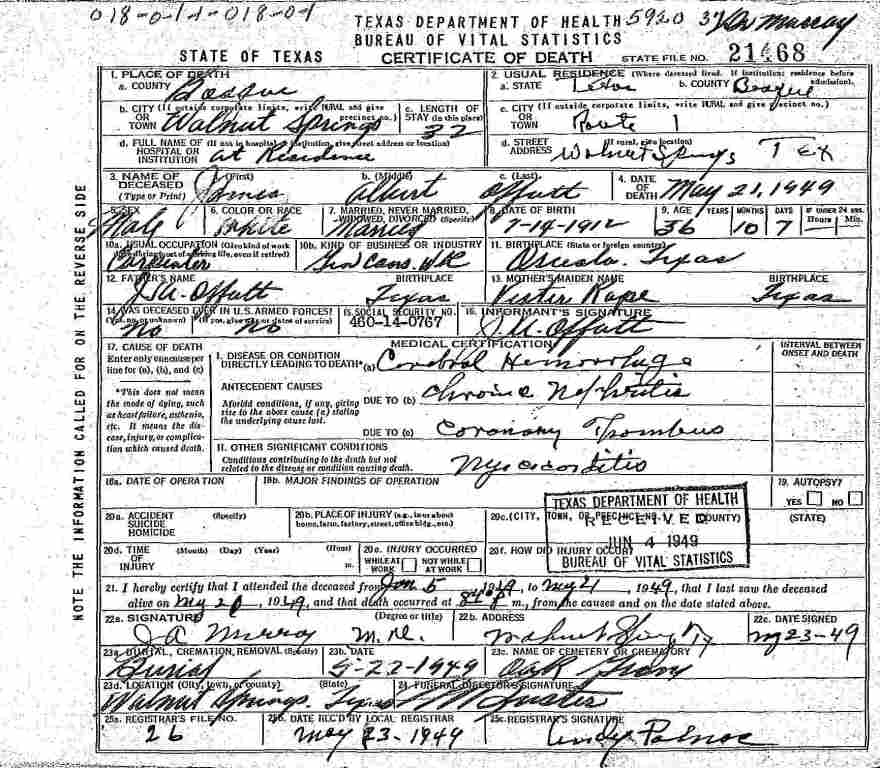 018-0-14-018-04
TEXAS DEPARTMENT OF HEALTH 5920 37 Dr Murray
BUREAU OF VITAL STATISTICS
STATE OF TEXAS CERTIFICATE OF DEATH STATE FILE NO. 21468
1. PLACE OF DEATH 2. USUAL RESIDENCE (Where deceased lived. If institution: residence before admission).
a. COUNTY Bosque a. STATE Texas b. COUNTY Bosque
b. CITY (If outside corporate limits, write RURAL and give precinct no.) OR TOWN Walnut Springs c. LENGTH OF STAY (in this place) 32 c. CITY (If outside corporate limits, write RURAL and give precinct no.) OR TOWN Route 1
d. FULL NAME OF (If not in hospital or institution, give street address or location) HOSPITAL OR INSTITUTION at Residence d. STREET (If rural, give location) ADDRESS Walnut Springs Tex
3. NAME OF DECEASED (Type or Print) a. (First) James b. (Middle) Albert c. (Last) Offutt 4. DATE OF DEATH May 21, 1949
5. SEX Male 6. COLOR OR RACE White 7. MARRIED, NEVER MARRIED, WIDOWED, DIVORCED (Specify) Married 8. DATE OF BIRTH 7-14-1912 9. AGE YEARS 36 MONTHS 10 DAYS 7 IF UNDER 24 HRS. Hours Min.
10a. USUAL OCCUPATION (Give kind of work done during most of working life, even if retired) Carpenter 10b. KIND OF BUSINESS OR INDUSTRY Gen Cons. Wk 11. BIRTHPLACE (State or foreign country) Osceola, Texas
12. FATHER'S NAME J. A. Offutt BIRTHPLACE Texas 13. MOTHER'S MAIDEN NAME BIRTHPLACE Texas
14. WAS DECEASED EVER IN U.S. ARMED FORCES? (Yes, no, or unknown) No (If yes, give war or dates of service) No 15. SOCIAL SECURITY NO. 460-14-0767 16. INFORMANT'S SIGNATURE J. A. Offutt
MEDICAL CERTIFICATION INTERVAL BETWEEN ONSET AND DEATH
17. CAUSE OF DEATH
Enter only one cause per line for (a), (b), and (c)
I. DISEASE OR CONDITION DIRECTLY LEADING TO DEATH* (a) Cerebral Hemorrhage
*This does not mean the mode of dying, such as heart failure, asthenia, etc. It means the disease, injury, or complication which caused death.
ANTECEDENT CAUSES
Morbid conditions, if any, giving rise to the above cause (a) stating the underlying cause last.
DUE TO (b) chronic Nephritis
DUE TO (c) Coronary Trombus
II. OTHER SIGNIFICANT CONDITIONS
Conditions contributing to the death but not related to the disease or condition causing death. Myocarditis
18a. DATE OF OPERATION 18b. MAJOR FINDINGS OF OPERATION 19. AUTOPSY? YES NO
20a. ACCIDENT SUICIDE HOMICIDE (Specify) 20b. PLACE OF INJURY (e.g., in or about home, farm, factory, street, office bldg., etc.) 20c. (CITY, TOWN, OR PRECINCT NO.) (COUNTY) (STATE)
TEXAS DEPARTMENT OF HEALTH
RECEIVED
JUN 4 1949
BUREAU OF VITAL STATISTICS
20d. TIME OF INJURY (Month) (Day) (Year) (Hour) m. 20e. INJURY OCCURRED WHILE AT WORK NOT WHILE AT WORK 20f. HOW DID INJURY OCCUR?
21. I hereby certify that I attended the deceased from Jan 5, 1949, to May 21, 1949, that I last saw the deceased
alive on May 20, 1949, and that death occurred at m., from the causes and on the date stated above.
22a. SIGNATURE (Degree or title) J A Murray M.D. 22b. ADDRESS Walnut Springs Tx 22c. DATE SIGNED May 23-49
23a. BURIAL, CREMATION, REMOVAL (Specify) Burial 23b. DATE 5-22-1949 23c. NAME OF CEMETERY OR CREMATORY Oak Grove
23d. LOCATION (City, town, or county) (State) Walnut Springs, Texas 24. FUNERAL DIRECTOR'S SIGNATURE
25a. REGISTRAR'S FILE NO. 26 25b. DATE REC'D BY LOCAL REGISTRAR May 23-1949 25c. REGISTRAR'S SIGNATURE
NOTE THE INFORMATION CALLED FOR ON THE REVERSE SIDE